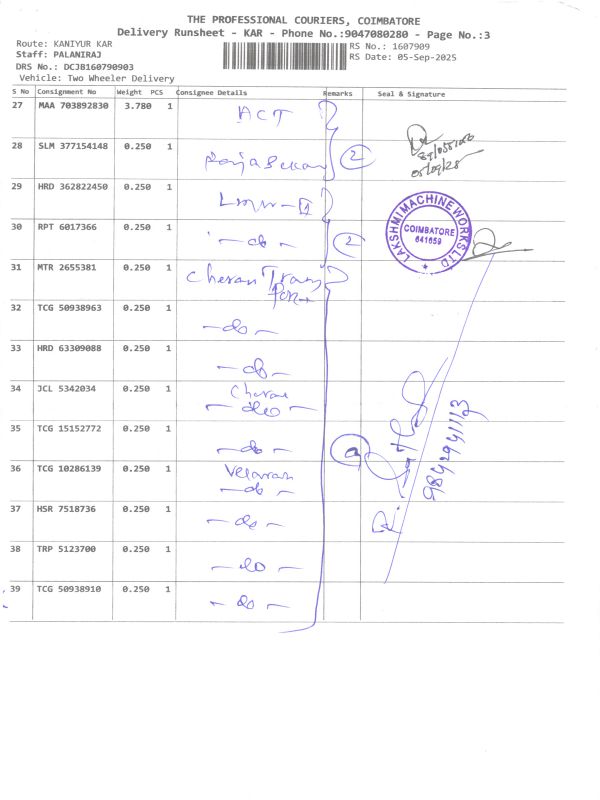 THE PROFESSIONAL COURIERS, COIMBATORE
Delivery Runsheet - KAR - Phone No.:9047080280 - Page No.:3
Route: KANIYUR KAR
RS No.: 1607909
Staff: PALANIRAJ
RS Date: 05-Sep-2025
DRS No.: DCJB160790903
Vehicle: Two Wheeler Delivery
S No Consignment No Weight PCS Consignee Details Remarks Seal & Signature
27 MAA 703892830 3.780 1 ACT
28 SLM 377154148 0.250 1 2
05/09/25
29 HRD 362822450 0.250 1
LAKSHMI MACHINE WORKS LTD
COIMBATORE
641659
30 RPT 6017366 0.250 1 - do - 2
31 MTR 2655381 0.250 1 Cheran Trans
port
32 TCG 50938963 0.250 1 - do -
33 HRD 63309088 0.250 1 - do -
34 JCL 5342034 0.250 1 Cheran
- do -
35 TCG 15152772 0.250 1 - do - 9
9842941113
36 TCG 10286139 0.250 1 Velavan
- do -
37 HSR 7518736 0.250 1 - do -
38 TRP 5123700 0.250 1 - do -
39 TCG 50938910 0.250 1 - do -